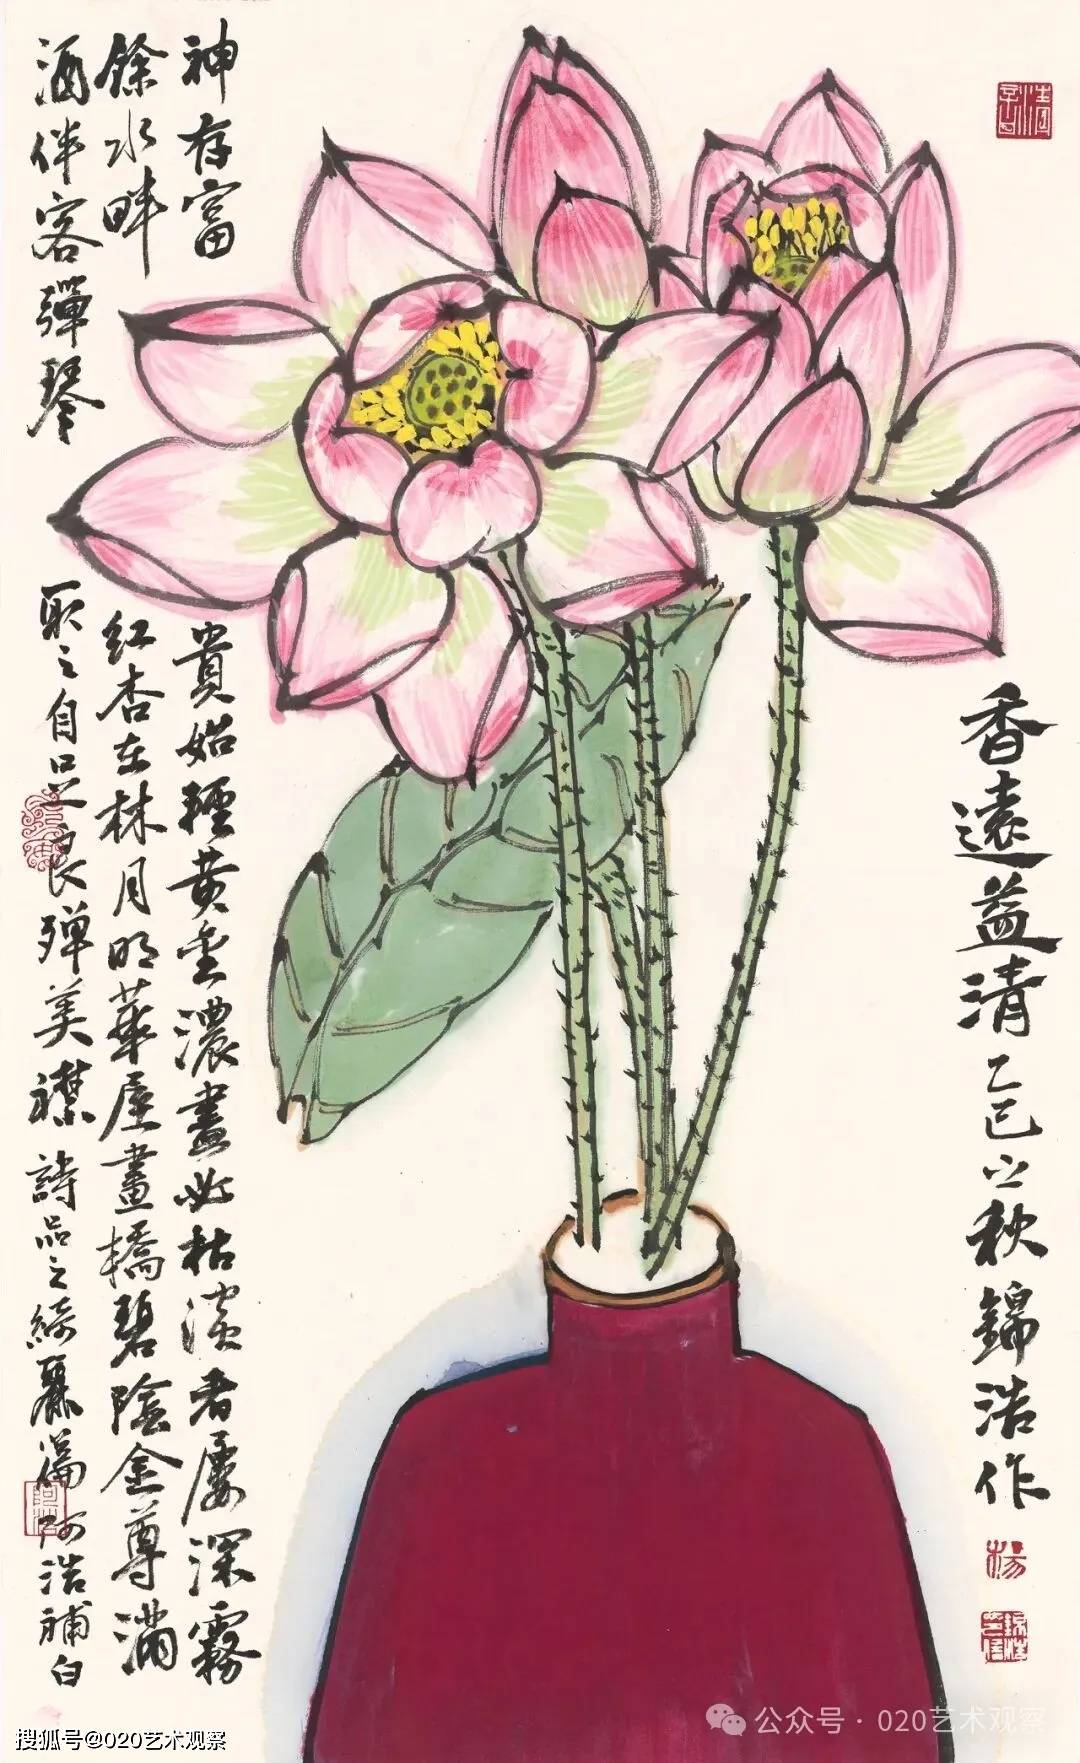 香遠益清 乙巳之秋錦浩作
楊
神存富
貴始輕黄金濃盡必枯淡者屡深霧
餘水畔
红杏在林月明華屋畫橋碧陰金尊滿
酒伴客彈琴
取之自足良殫美襟 詩品之綺麗篇 阿浩補白
搜狐号@020艺术观察
公众号 · 020艺术观察